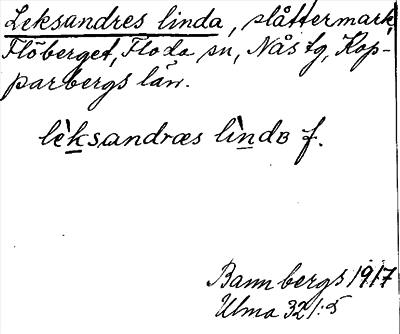 Leksandres linda, slåttermark,
Flöberget, Floda sn, Nås tg, Kop-
parbergs län.
lèksandræs lìndɒ f.
Bannbergs 1917
Ulma 321:5